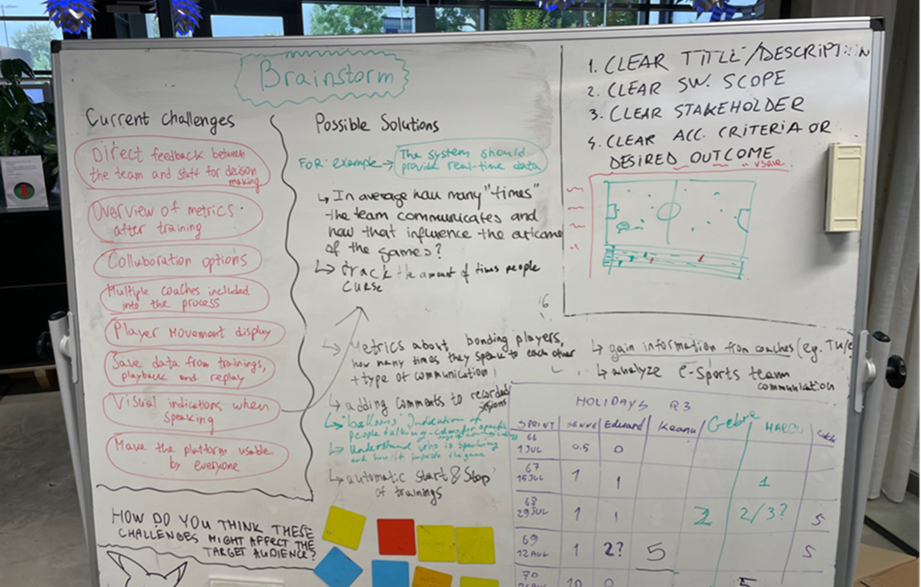 Brainstorm
Current challenges
Direct feedback between
the team and staff for decision
making
Overview of metrics
after training
Collaboration options
Multiple coaches included
into the process
Player movement display
Save data from trainings,
playback and replay
Visual indications when
speaking
Make the platform usable
by everyone
HOW DO YOU THINK THESE
CHALLENGES MIGHT AFFECT THE
TARGET AUDIENCE?
Possible Solutions
FOR example → The system should
provide real-time data
↳ In average how many "times"
the team communicates and
how that influence the outcome
of the games?
↳ track the amount of times people
curse
↳ Metrics about bonding players,
how many times they speak to each other
+ type of communication
↳ adding comments to recorded
sessions
people talking
↳ Understand who is speaking
and how it impacts the game
↳ automatic start & stop
of trainings
1. CLEAR TITLE/DESCRIPTION
2. CLEAR SW. SCOPE
3. CLEAR STAKEHOLDER
4. CLEAR ACC. CRITERIA OR
DESIRED OUTCOME
↳ gain information from coaches (eg. TU/e
↳ analyze e-sports team
communication
HOLIDAYS Q3
SPRINT Edward Keanu
66
1 JUL 0.5 0
67
15 JUL 1 1 1
68
29 JUL 1 1 2 2/3? 5
69
12 AUG 1 2? 5 5
70
10 0 5